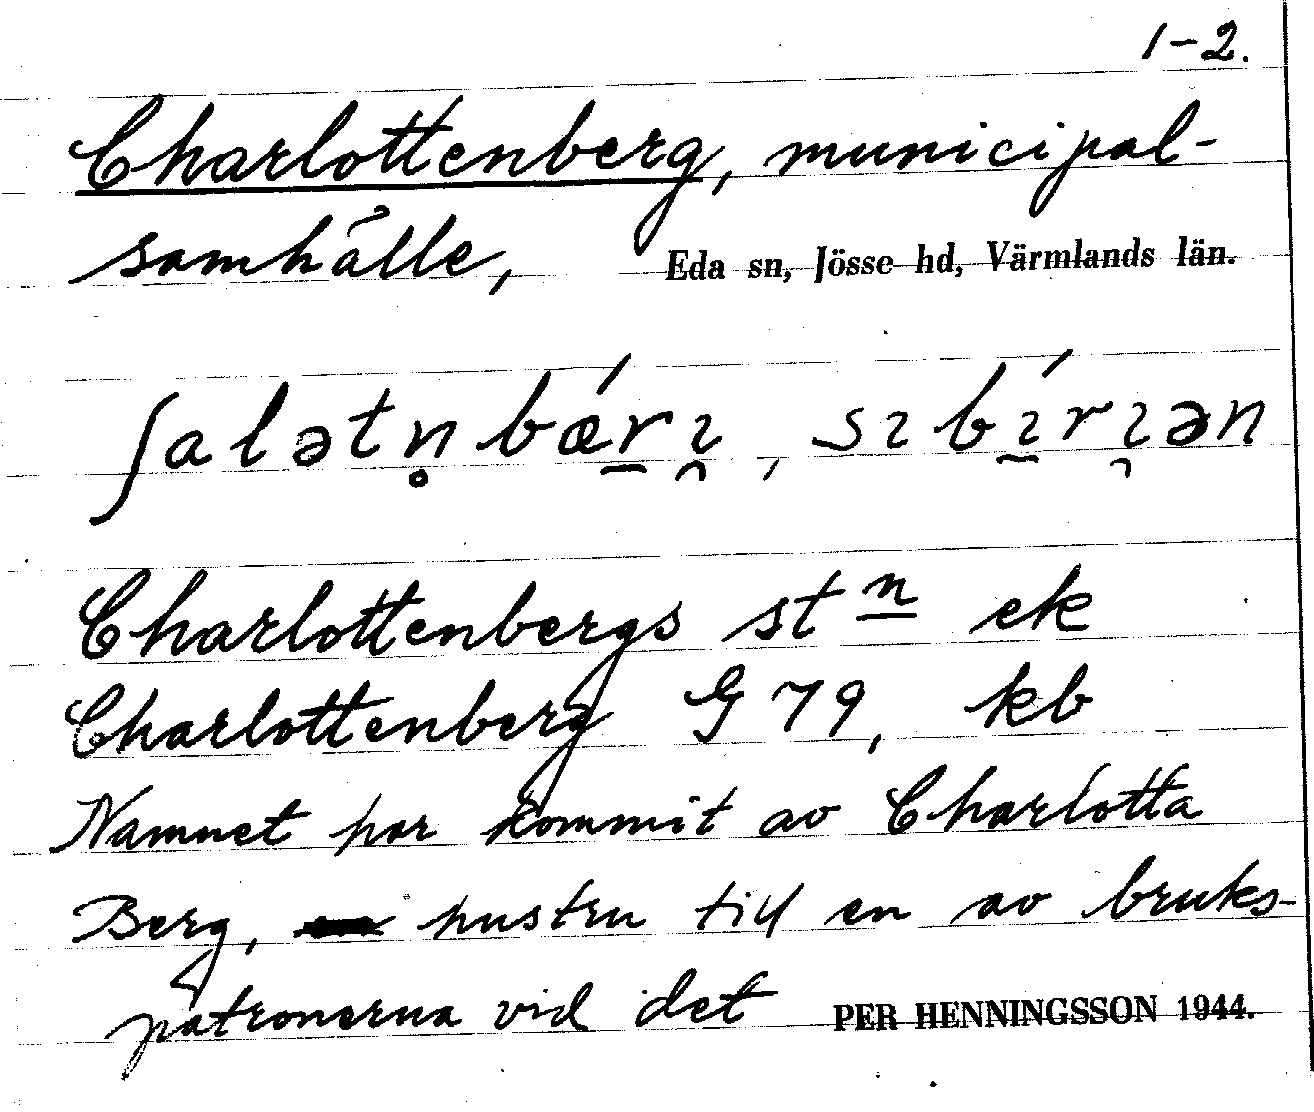 1-2.
Charlottenberg, municipal-
samhälle, Eda sn, Jösse hd, Värmlands län.
ʃalətn̥bǽrı̯, sıbı́rı̯ən
Charlottenbergs stn ek
Charlottenberg G 79, kb
Namnet har kommit av Charlotta
Berg, hustru till en av bruks-
patronerna vid det PER HENNINGSSON 1944.